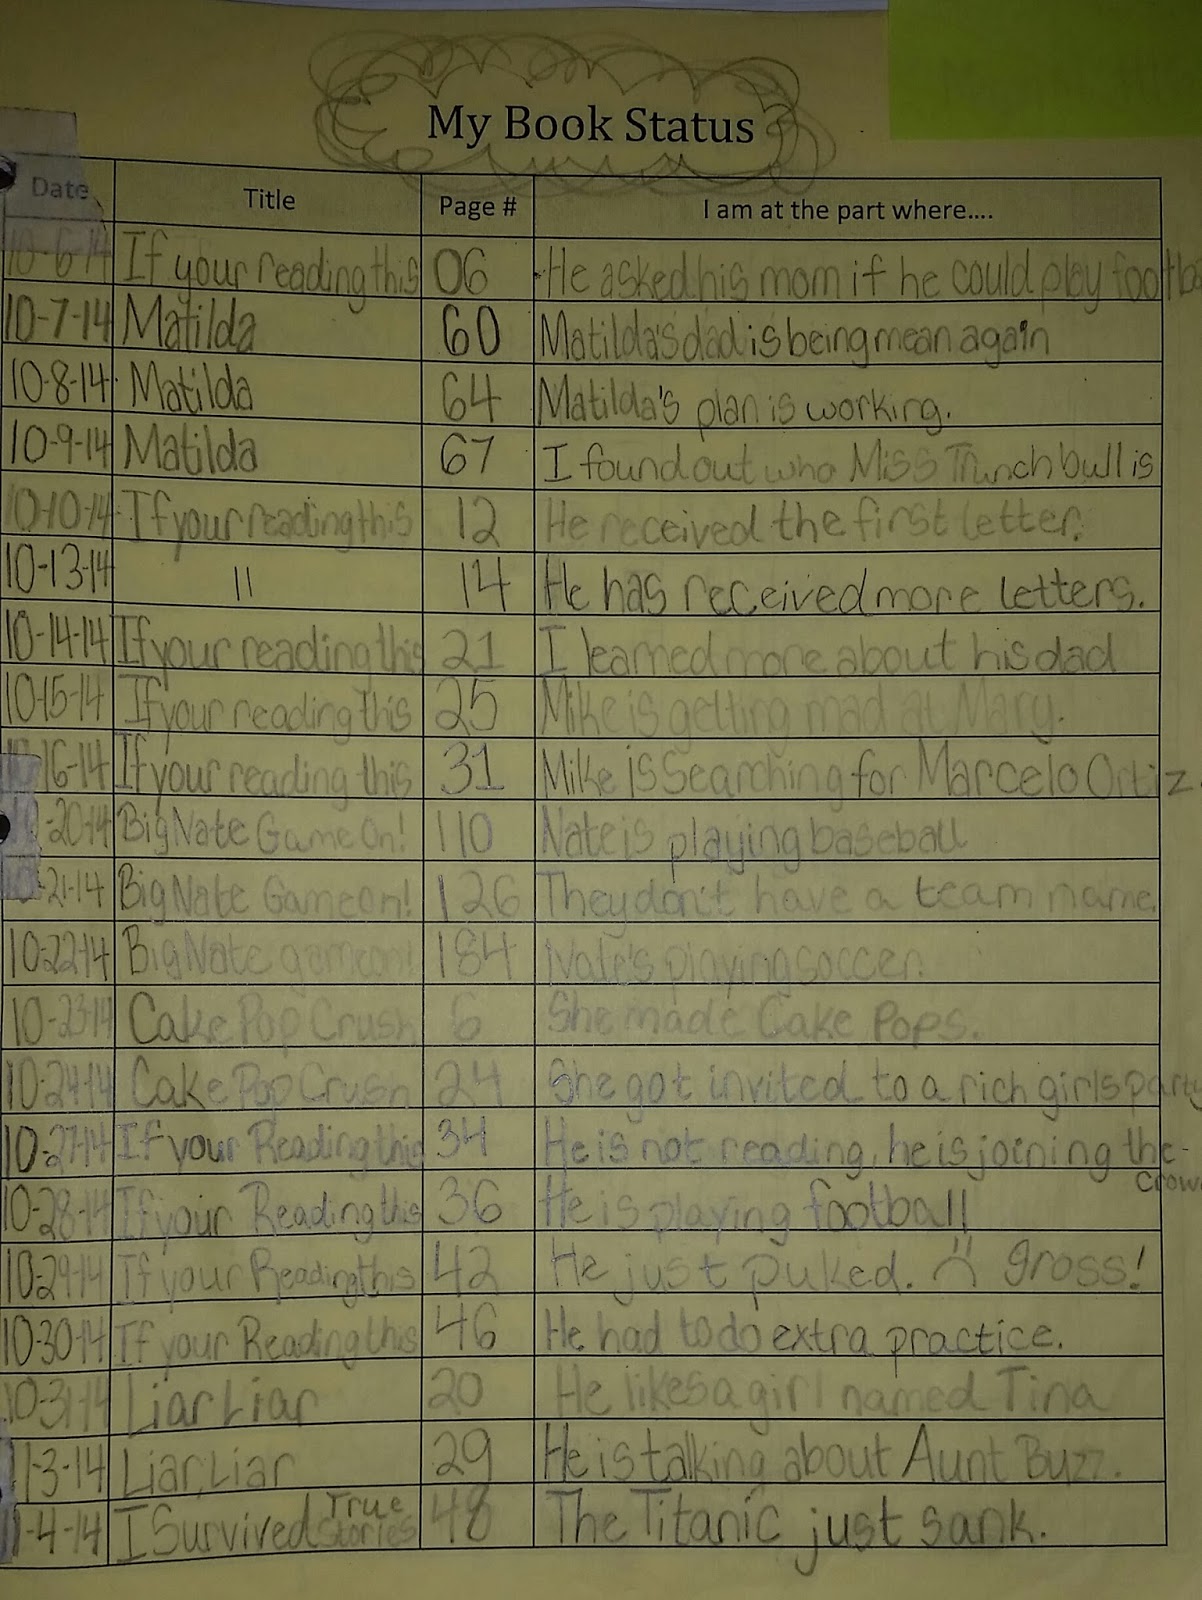 My Book Status
Date Title Page # I am at the part where....
10-6-14 If your reading this 06 He asked his mom if he could play footba
10-7-14 Matilda 60 Matilda's dad is being mean again
10-8-14 Matilda 64 Matilda's plan is working.
10-9-14 Matilda 67 I found out who Miss Trunchbull is
10-10-14 If your reading this 12 He received the first letter.
10-13-14 11 14 He has received more letters.
10-14-14 If your reading this 21 I learned more about his dad
10-15-14 If your reading this 25 Mike is getting mad at Mary.
10-16-14 If your reading this 31 Mike is Searching for Marcelo Ortiz.
10-20-14 Big Nate Game On! 110 Nate is playing baseball
10-21-14 Big Nate Game on! 126 They don't have a team name.
10-22-14 Big Nate game on! 184 Nate's playing soccer.
10-23-14 Cake Pop Crush 6 She made Cake Pops.
10-24-14 Cake Pop Crush 24 She got invited to a rich girls party
10-27-14 If your Reading this 34 He is not reading, he is joining the-
crow
10-28-14 If your Reading this 36 He is playing football
10-29-14 If your Reading this 42 He just puked. gross!
10-30-14 If your Reading this 46 He had to do extra practice.
10-31-14 Liar Liar 20 He likes a girl named Tina
11-3-14 Liar, Liar 29 He is talking about Aunt Buzz.
11-4-14 I Survived True Stories 48 The Titanic just sank.